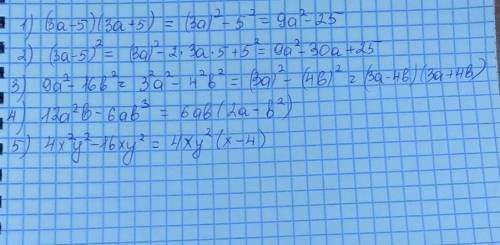 1) (3a-5)(3a+5) = (3a)²-5² = 9a²-25
2) (3a-5)² = (3a)²-2·3a·5+5² = 9a²-30a+25
3) 9a²-16b² = 3²a²-4²b² = (3a)²-(4b)² = (3a-4b)(3a+4b)
4) 12a²b-6ab³ = 6ab(2a-b²)
5) 4x²y²-16xy² = 4xy²(x-4)